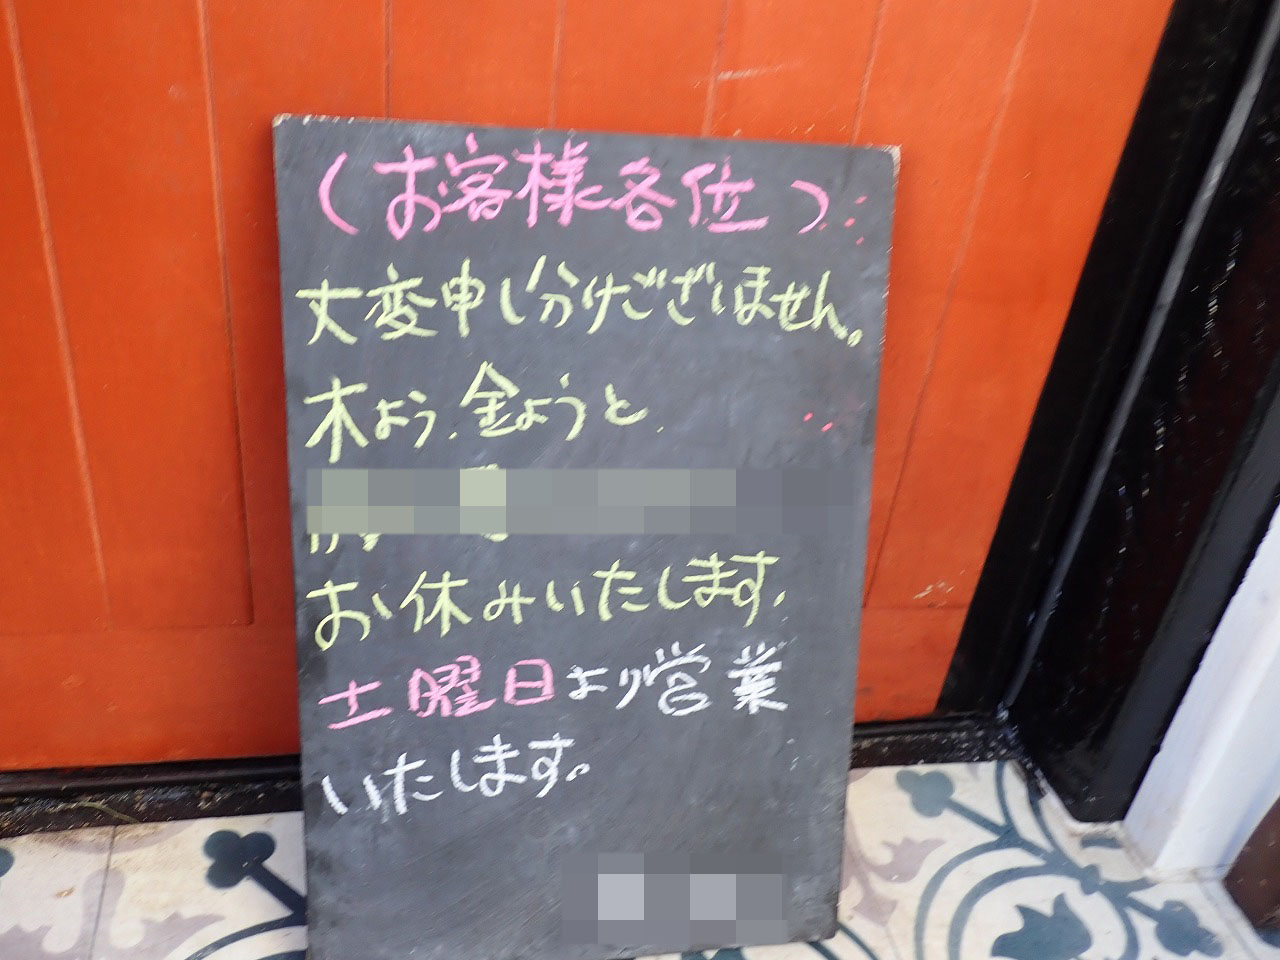 (お客様各位)
大変申し分けございません。
木よう、金ようと
お休みいたします。
土曜日より営業
いたします。